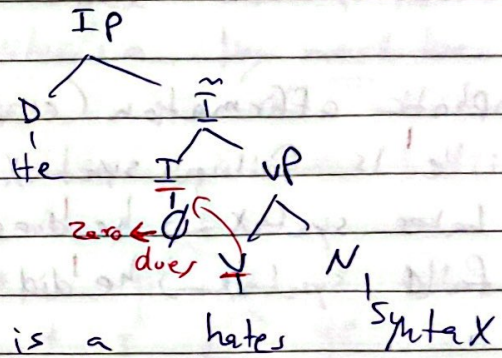 IP
D Ĩ
He I VP
Zero ← Ø
dues V N
is a hates Syntax